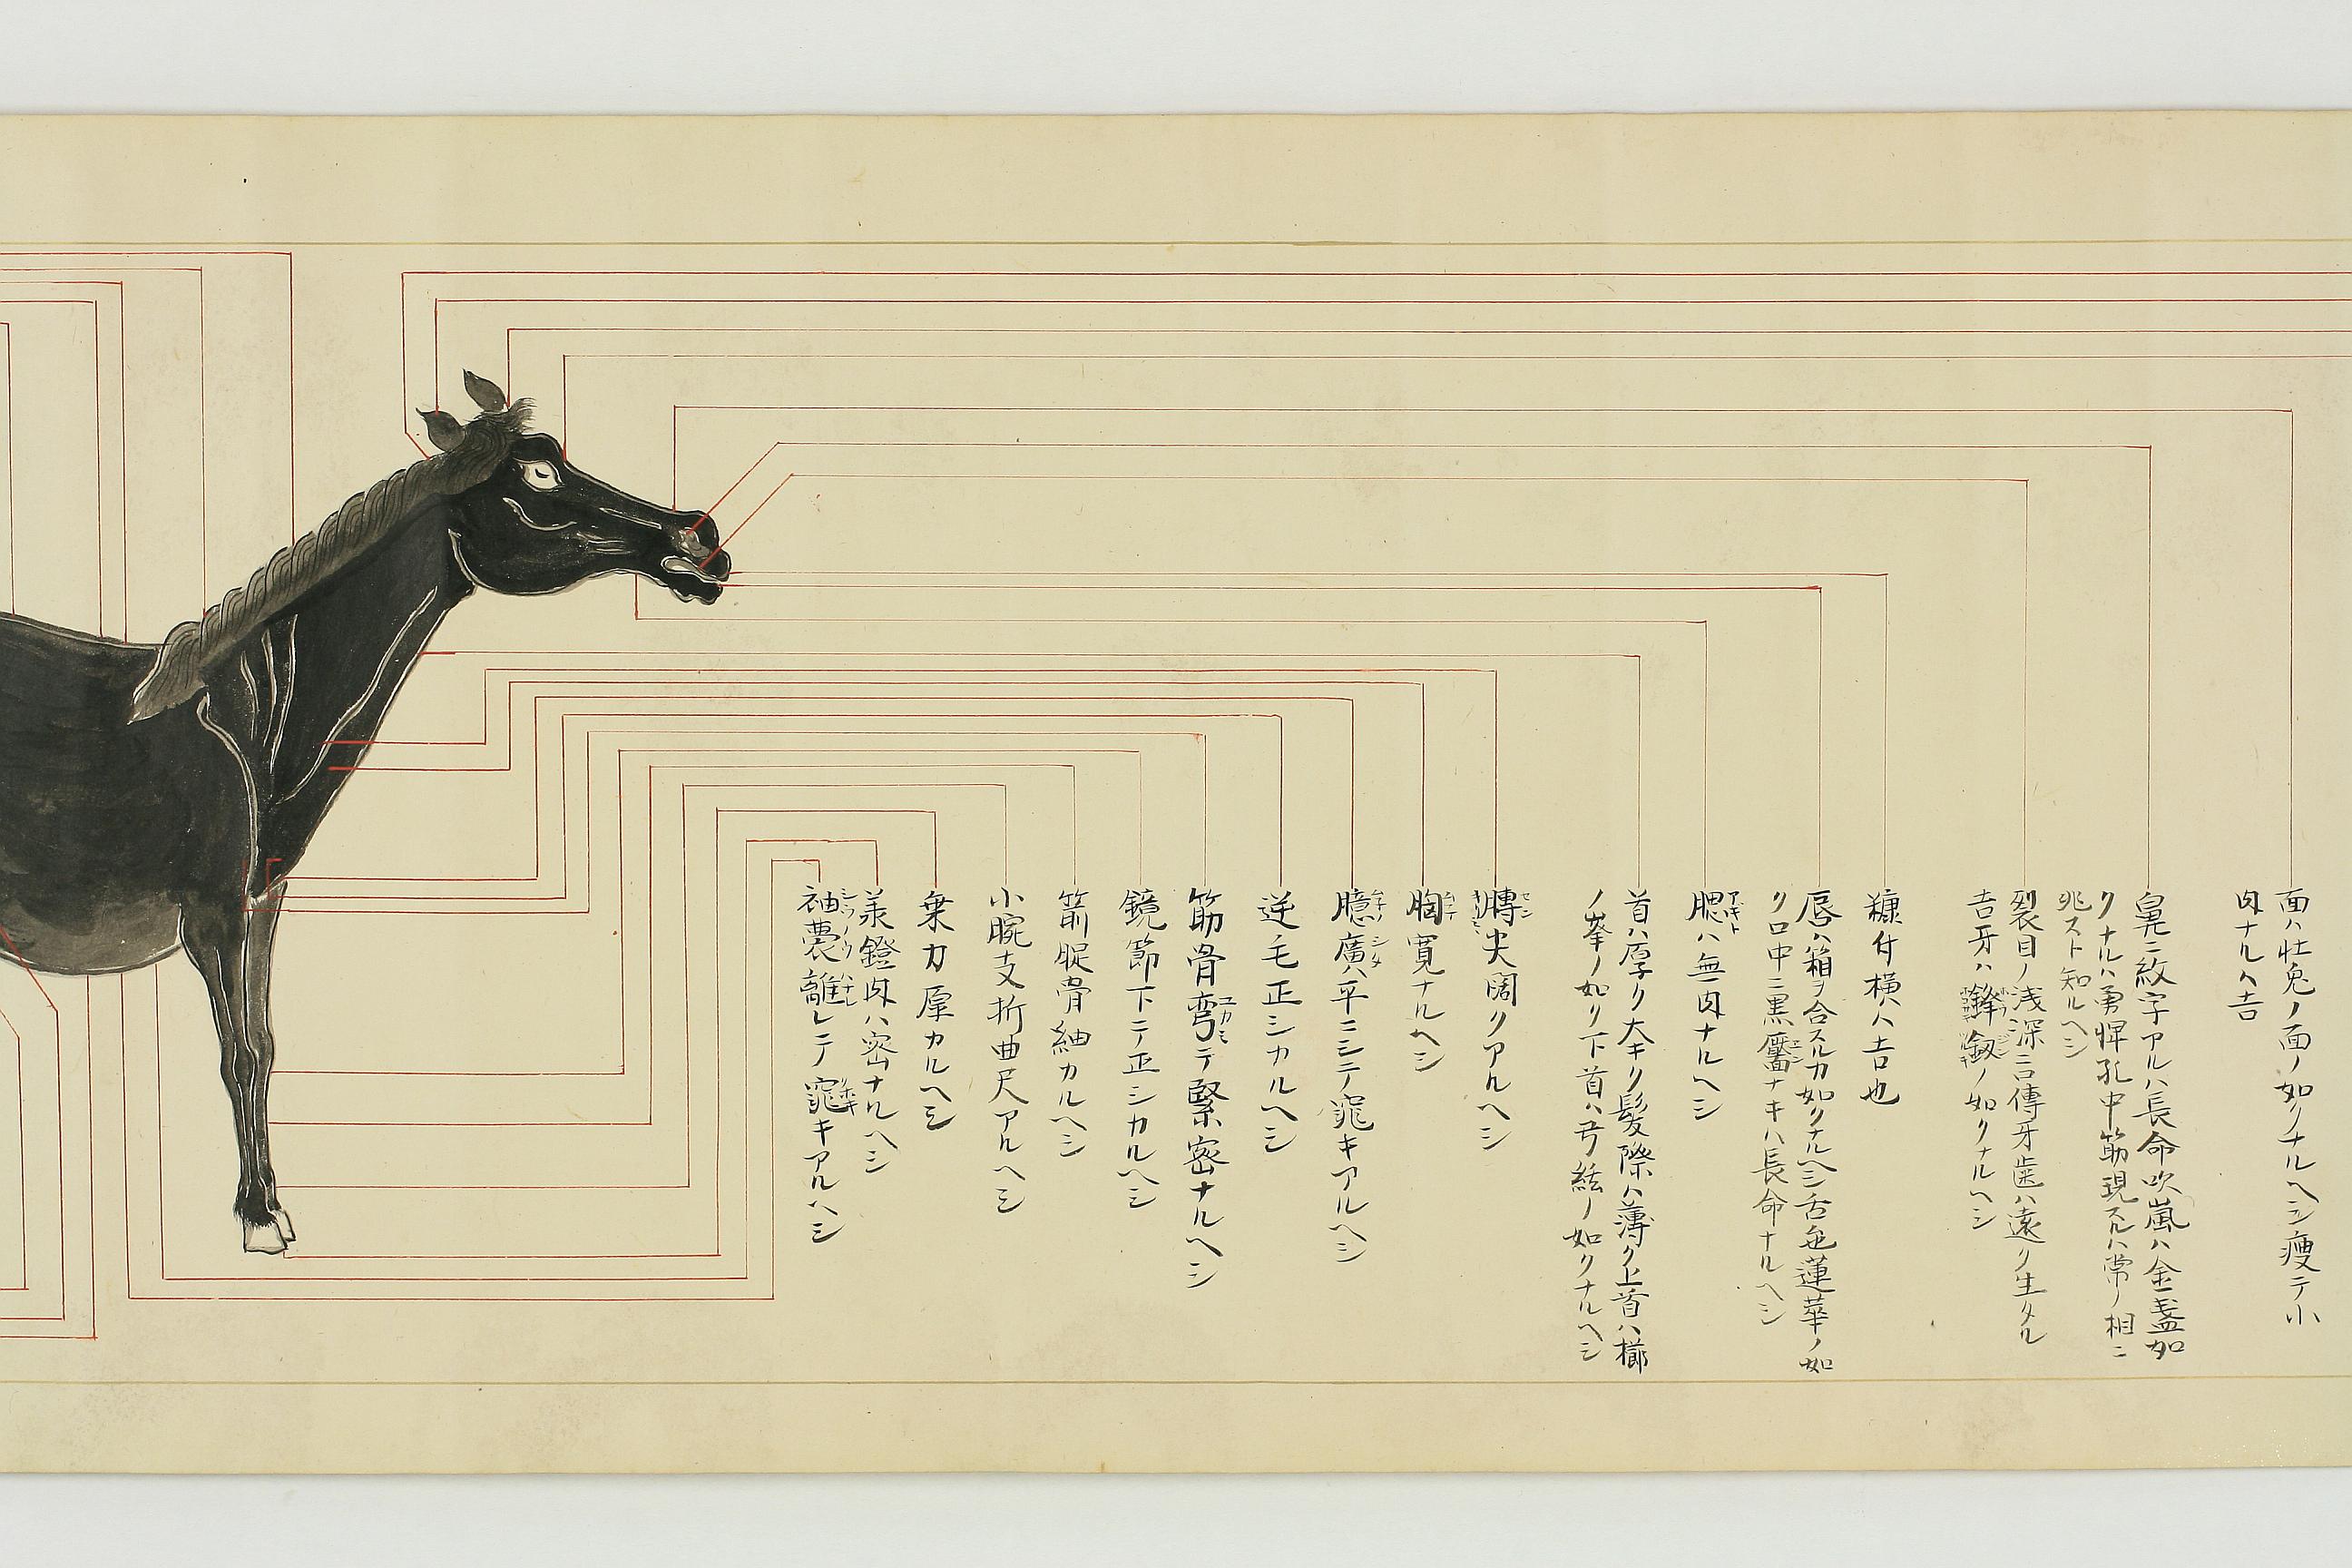 面ハ牡兔ノ面ノ如クナルヘシ痩テ小
肉ナルハ吉
鼻ニ紋字アルハ長命吹嵐ハ金盞如
クナルハ勇悍孔中筋現スルハ常ノ相ニ
兆スト知ルヘシ
裂目ノ浅深ニ口傳牙歯ハ遠ク生タル
吉牙ハ鋒釼ノ如クナルヘシ
糠付横ハ吉也
唇ハ箱ヲ合スルカ如クナルヘシ舌色蓮華ノ如
ク口中ニ黒黶ナキハ長命ナルヘシ
腮ハ無肉ナルヘシ
首ハ厚ク大キク髪際ハ薄ク上首ハ櫛
ノ峯ノ如ク下首ハ弓絃ノ如クナルヘシ
膞尖濶クアルヘシ
胸寛ナルヘシ
臆廣ハ平ニシテ窕キアルヘシ
逆毛正シカルヘシ
筋骨弯テ緊密ナルヘシ
鏡節下テ正シカルヘシ
箭腚骨紬カルヘシ
小腕支折曲尺アルヘシ
乗力厚カルヘシ
鐙肉ハ密ナルヘシ
袖嚢離レテ窕キアルヘシ